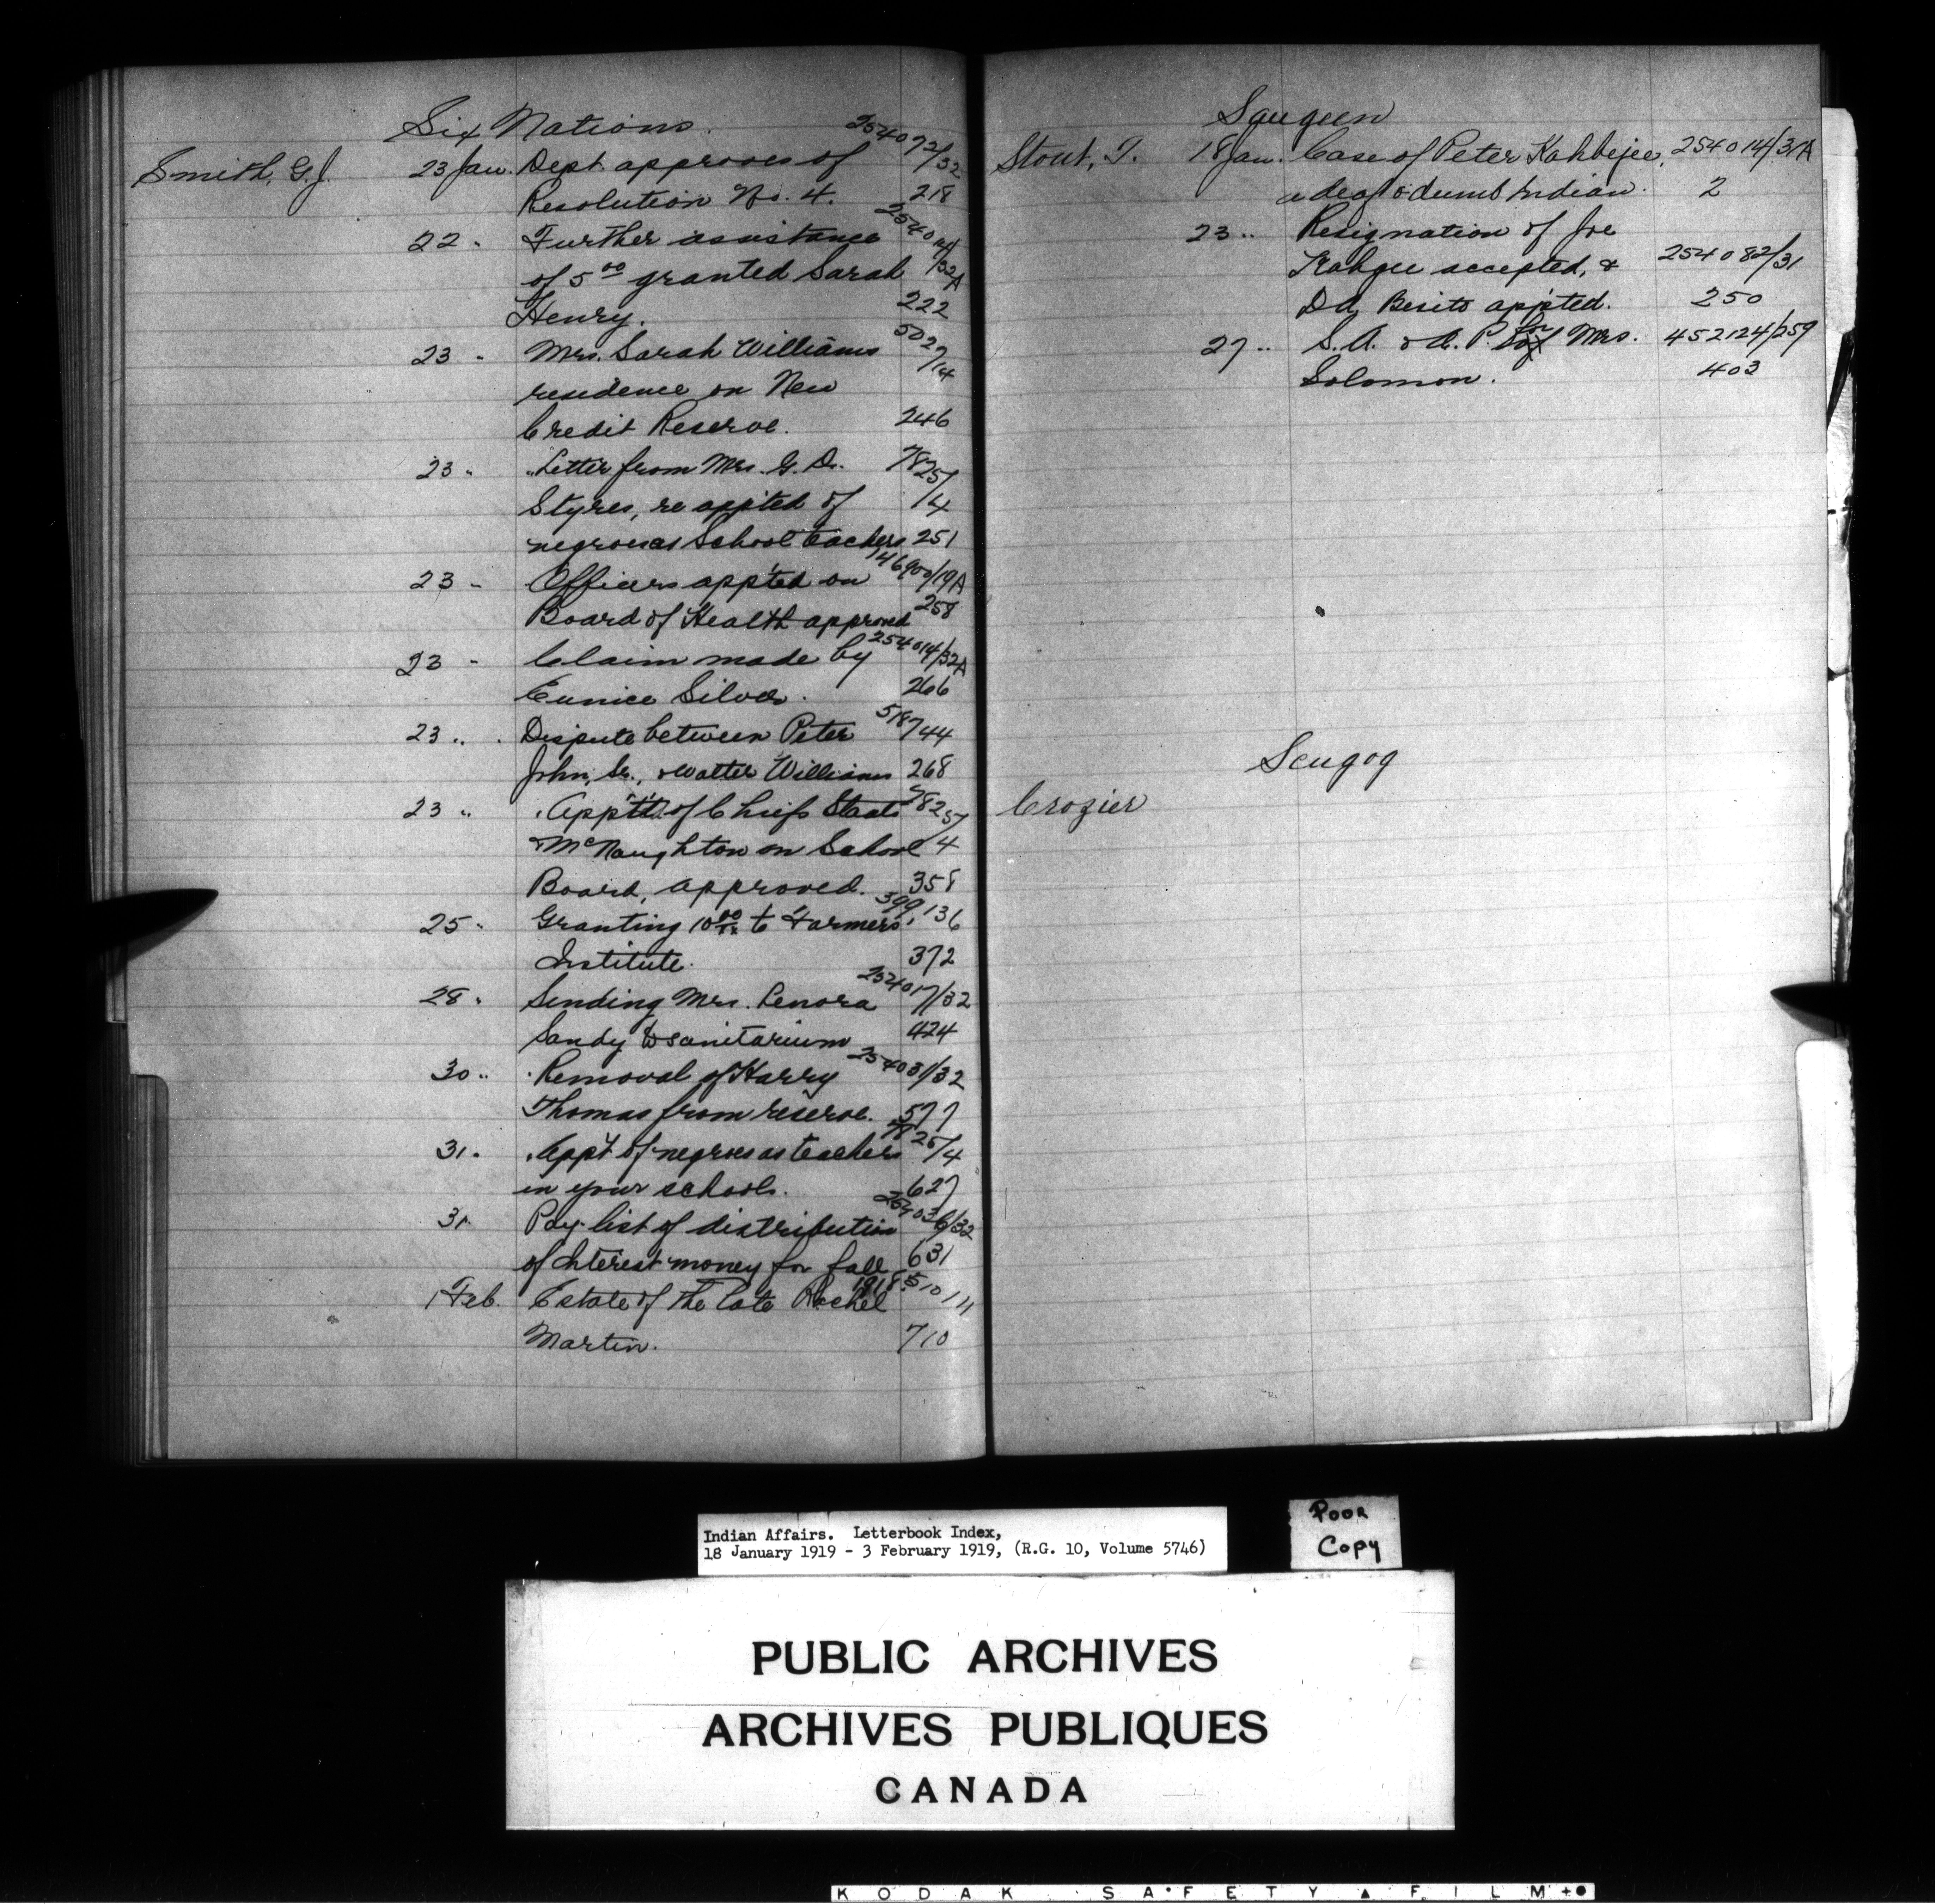 Six Nations. 254072/32
Smith, G.J. 23 Jan. Dept. approves of
Resolution No. 4. 218
22 " Further assistance 254014/32A
of 5 00 granted Sarah
Henry. 222
23 " Mrs. Sarah Williams 5027/14
residence on New
Credit Reserve. 246
23 " Letter from Mrs. G. D. 78257/4
Styres, re app'ted of
negroes as School teachers 251
23 " Officers app'ted on 146900/19A
Board of Health approved 258
23 " Claim made by 254014/32A
Eunice Silver. 266
23 " Dispute between Peter 518744
John, Sr., & Walter Williams 268
23 " App't of Chiefs Staats 78257/4
& McNaughton on School
Board, approved. 358
25 " Granting 10 00 to Farmers' 399,136
Institute. 372
28 " Sending Mrs. Lenora 254017/32
Sandy to sanitarium 424
30 " Removal of Harry 254031/32
Thomas from reserve. 577
31 " App't of negroes as teachers
in your schools. 627
31 " Pay-list of distribution
of Interest money for fall 631
1918.
1 Feb. Estate of the late Rachel 510111
Martin. 710
Saugeen
Stout, T. 18 Jan. Case of Peter Kahbejee, 254014/31A
a deaf & dumb Indian. 2
23 " Resignation of Joe
Kahgee accepted, & 254082/31
Dd. Besito app'ted. 250
27 " S.A. & A.P. for Mrs. 452124/259
Solomon. 403
Scugog
Crozier
Indian Affairs. Letterbook Index,
18 January 1919 - 3 February 1919, (R.G. 10, Volume 5746)
Poor
Copy
PUBLIC ARCHIVES
ARCHIVES PUBLIQUES
CANADA
KODAK SAFETY ▲ FILM